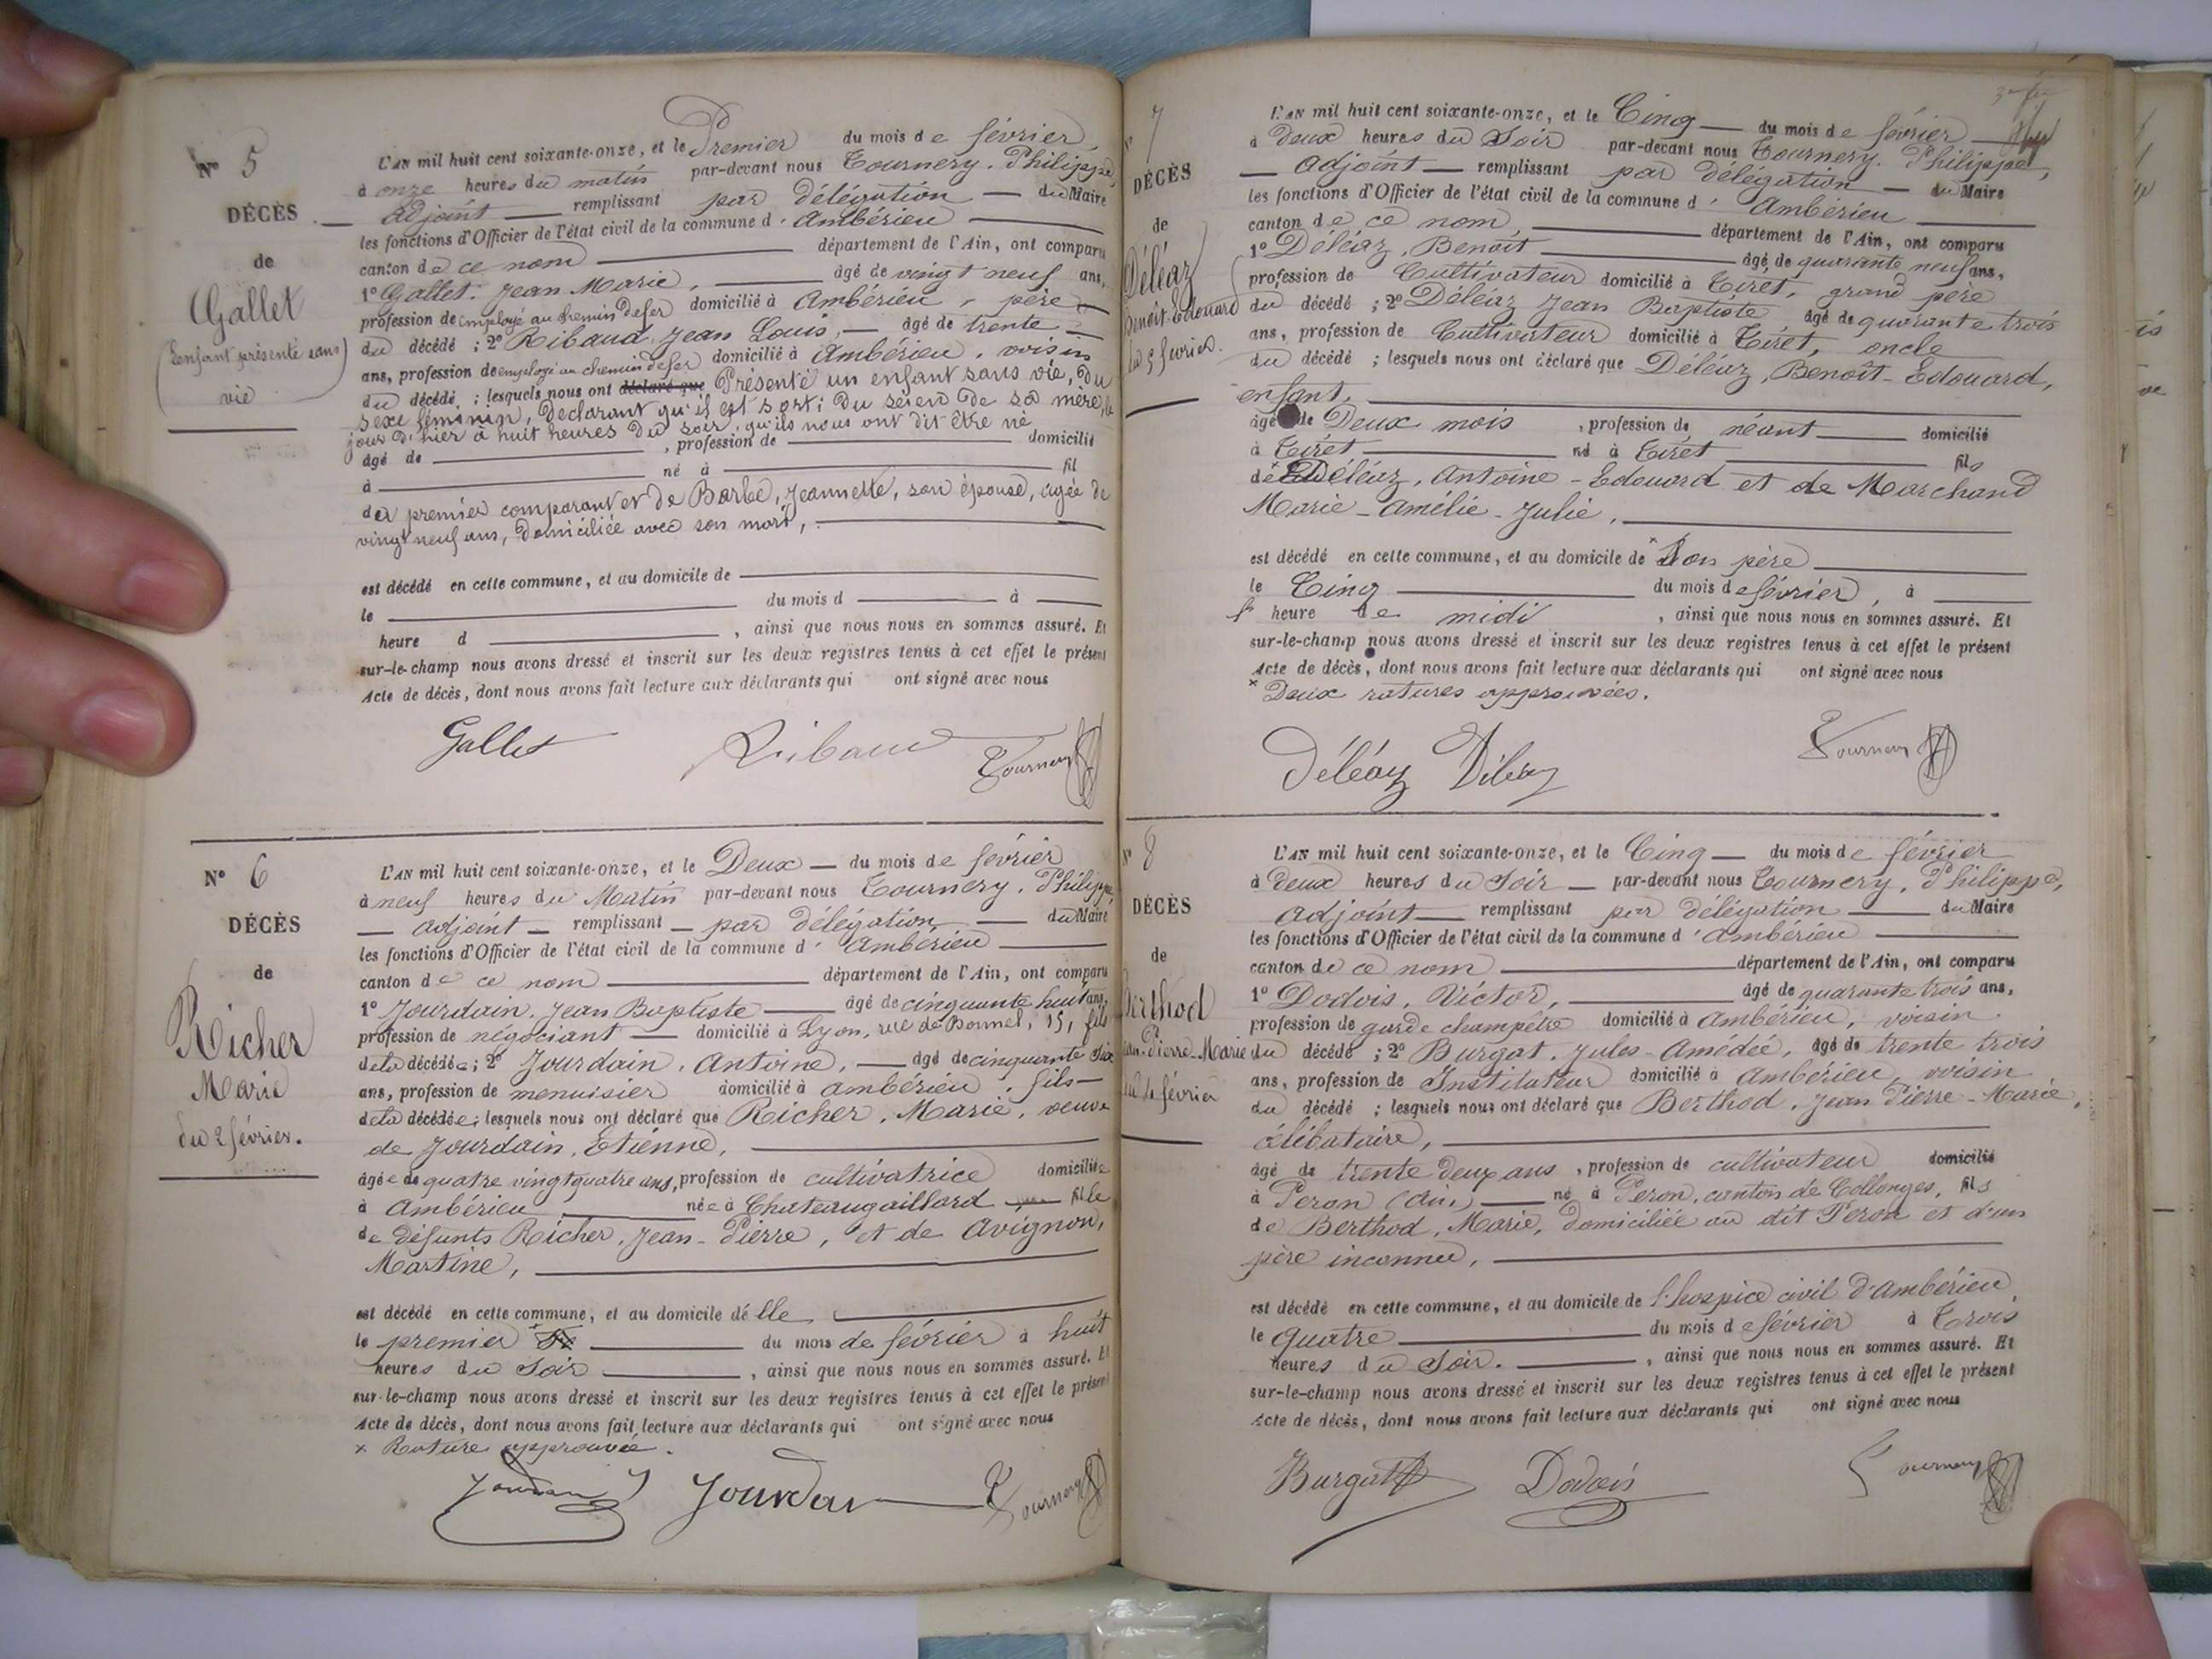 N° 5
DÉCÈS
de
Gallet
(Enfant présenté sans
vie)
L'AN mil huit cent soixante-onze, et le Premier du mois de février
à onze heures du matin par-devant nous Tournery, Philippe,
adjoint — remplissant par délégation — du Maire
les fonctions d'Officier de l'état civil de la commune d'Ambérieu
canton de ce nom département de l'Ain, ont comparu
1° Gallet, Jean Marie, âgé de vingt neuf ans,
profession de employé au chemin de fer domicilié à Ambérieu, père
du décédé ; 2° Ribaud, Jean Louis, — âgé de trente
ans, profession de employé au chemin de fer domicilié à Ambérieu, voisin
du décédé ; lesquels nous ont déclaré que Présenté un enfant sans vie, du
sexe féminin, déclarant qu'il est sorti du sein de sa mère, le
jour d'hier à huit heures du soir, qu'ils nous ont dit être né
âgé de , profession de domicilié
à né à fil
du premier comparant et de Barbe, Jeannette, son épouse, âgée de
vingt neuf ans, domiciliée avec son mari,
est décédé en cette commune, et au domicile de
le du mois d à
heure d , ainsi que nous nous en sommes assuré. Et
sur-le-champ nous avons dressé et inscrit sur les deux registres tenus à cet effet le présent
Acte de décès, dont nous avons fait lecture aux déclarants qui ont signé avec nous
Gallet Ribaud Tournery
N° 6
DÉCÈS
de
Richer
Marie
du 2 février.
L'AN mil huit cent soixante-onze, et le Deux — du mois de février
à neuf heures du Matin par-devant nous Tournery, Philippe
— adjoint — remplissant — par délégation — du Maire
les fonctions d'Officier de l'état civil de la commune d'Ambérieu
canton de ce nom département de l'Ain, ont comparu
1° Jourdain, Jean Baptiste — âgé de cinquante huit ans,
profession de négociant — domicilié à Lyon, rue de Bonnel, 15, fils
de la décédée ; 2° Jourdain, Antoine, — âgé de cinquante six
ans, profession de menuisier domicilié à Ambérieu, fils —
de la décédée ; lesquels nous ont déclaré que Richer, Marie, veuve
de Jourdain, Etienne,
âgée de quatre vingt quatre ans, profession de cultivatrice domiciliée
à Ambérieu née à Chateaugaillard fille
de défunts Richer, Jean-Pierre, et de Avignon,
Martine,
est décédé en cette commune, et au domicile d'elle
le premier du mois de février à huit
heures du Soir , ainsi que nous nous en sommes assuré. Et
sur-le-champ nous avons dressé et inscrit sur les deux registres tenus à cet effet le présent
Acte de décès, dont nous avons fait lecture aux déclarants qui ont signé avec nous
× Rature approuvée.
Jourdain J Jourdain Tournery
N° 7
DÉCÈS
de
Déléaz
Benoît-Edouard
du 5 février.
L'AN mil huit cent soixante-onze, et le Cinq — du mois de février
à Deux heures du Soir par-devant nous Tournery, Philippe,
— adjoint — remplissant par délégation — du Maire
les fonctions d'Officier de l'état civil de la commune d'Ambérieu
canton de ce nom département de l'Ain, ont comparu
1° Déléaz, Benoît âgé de quarante neuf ans,
profession de Cultivateur domicilié à Tiret, grand père
du décédé ; 2° Déléaz Jean Baptiste âgé de quarante trois
ans, profession de Cultivateur domicilié à Tiret, oncle
du décédé ; lesquels nous ont déclaré que Déléaz, Benoît-Edouard,
enfant,
âgé de Deux mois , profession de néant domicilié
à Tiret né à Tiret fils
de × Déléaz, Antoine-Edouard et de Marchand
Marie-Amélie-Julie,
est décédé en cette commune, et au domicile de × Son père
le Cinq du mois de février, à
heure de midi , ainsi que nous nous en sommes assuré. Et
sur-le-champ nous avons dressé et inscrit sur les deux registres tenus à cet effet le présent
Acte de décès, dont nous avons fait lecture aux déclarants qui ont signé avec nous
× Deux ratures approuvées.
Déléaz Déléaz Tournery
N° 8
DÉCÈS
de
Berthod
Jean-Pierre-Marie
du 4 février
L'AN mil huit cent soixante-onze, et le Cinq — du mois de février
à Deux heures du Soir — par-devant nous Tournery, Philippe,
adjoint — remplissant par délégation — du Maire
les fonctions d'Officier de l'état civil de la commune d'Ambérieu
canton de ce nom département de l'Ain, ont comparu
1° Dodois, Victor, âgé de quarante trois ans,
profession de garde champêtre domicilié à Ambérieu, voisin
du décédé ; 2° Burgat, Jules-Amédée, âgé de trente trois
ans, profession de Instituteur domicilié à Ambérieu, voisin
du décédé ; lesquels nous ont déclaré que Berthod, Jean Pierre-Marie,
célibataire,
âgé de trente deux ans , profession de cultivateur domicilié
à Peron (Ain) — né à Peron, canton de Collonges, fils
de Berthod, Marie, domiciliée au dit Peron et d'un
père inconnu,
est décédé en cette commune, et au domicile de l'hospice civil d'Ambérieu
le Quatre du mois de février à Trois
heures du Soir. , ainsi que nous nous en sommes assuré. Et
sur-le-champ nous avons dressé et inscrit sur les deux registres tenus à cet effet le présent
Acte de décès, dont nous avons fait lecture aux déclarants qui ont signé avec nous
Burgat Dodois Tournery